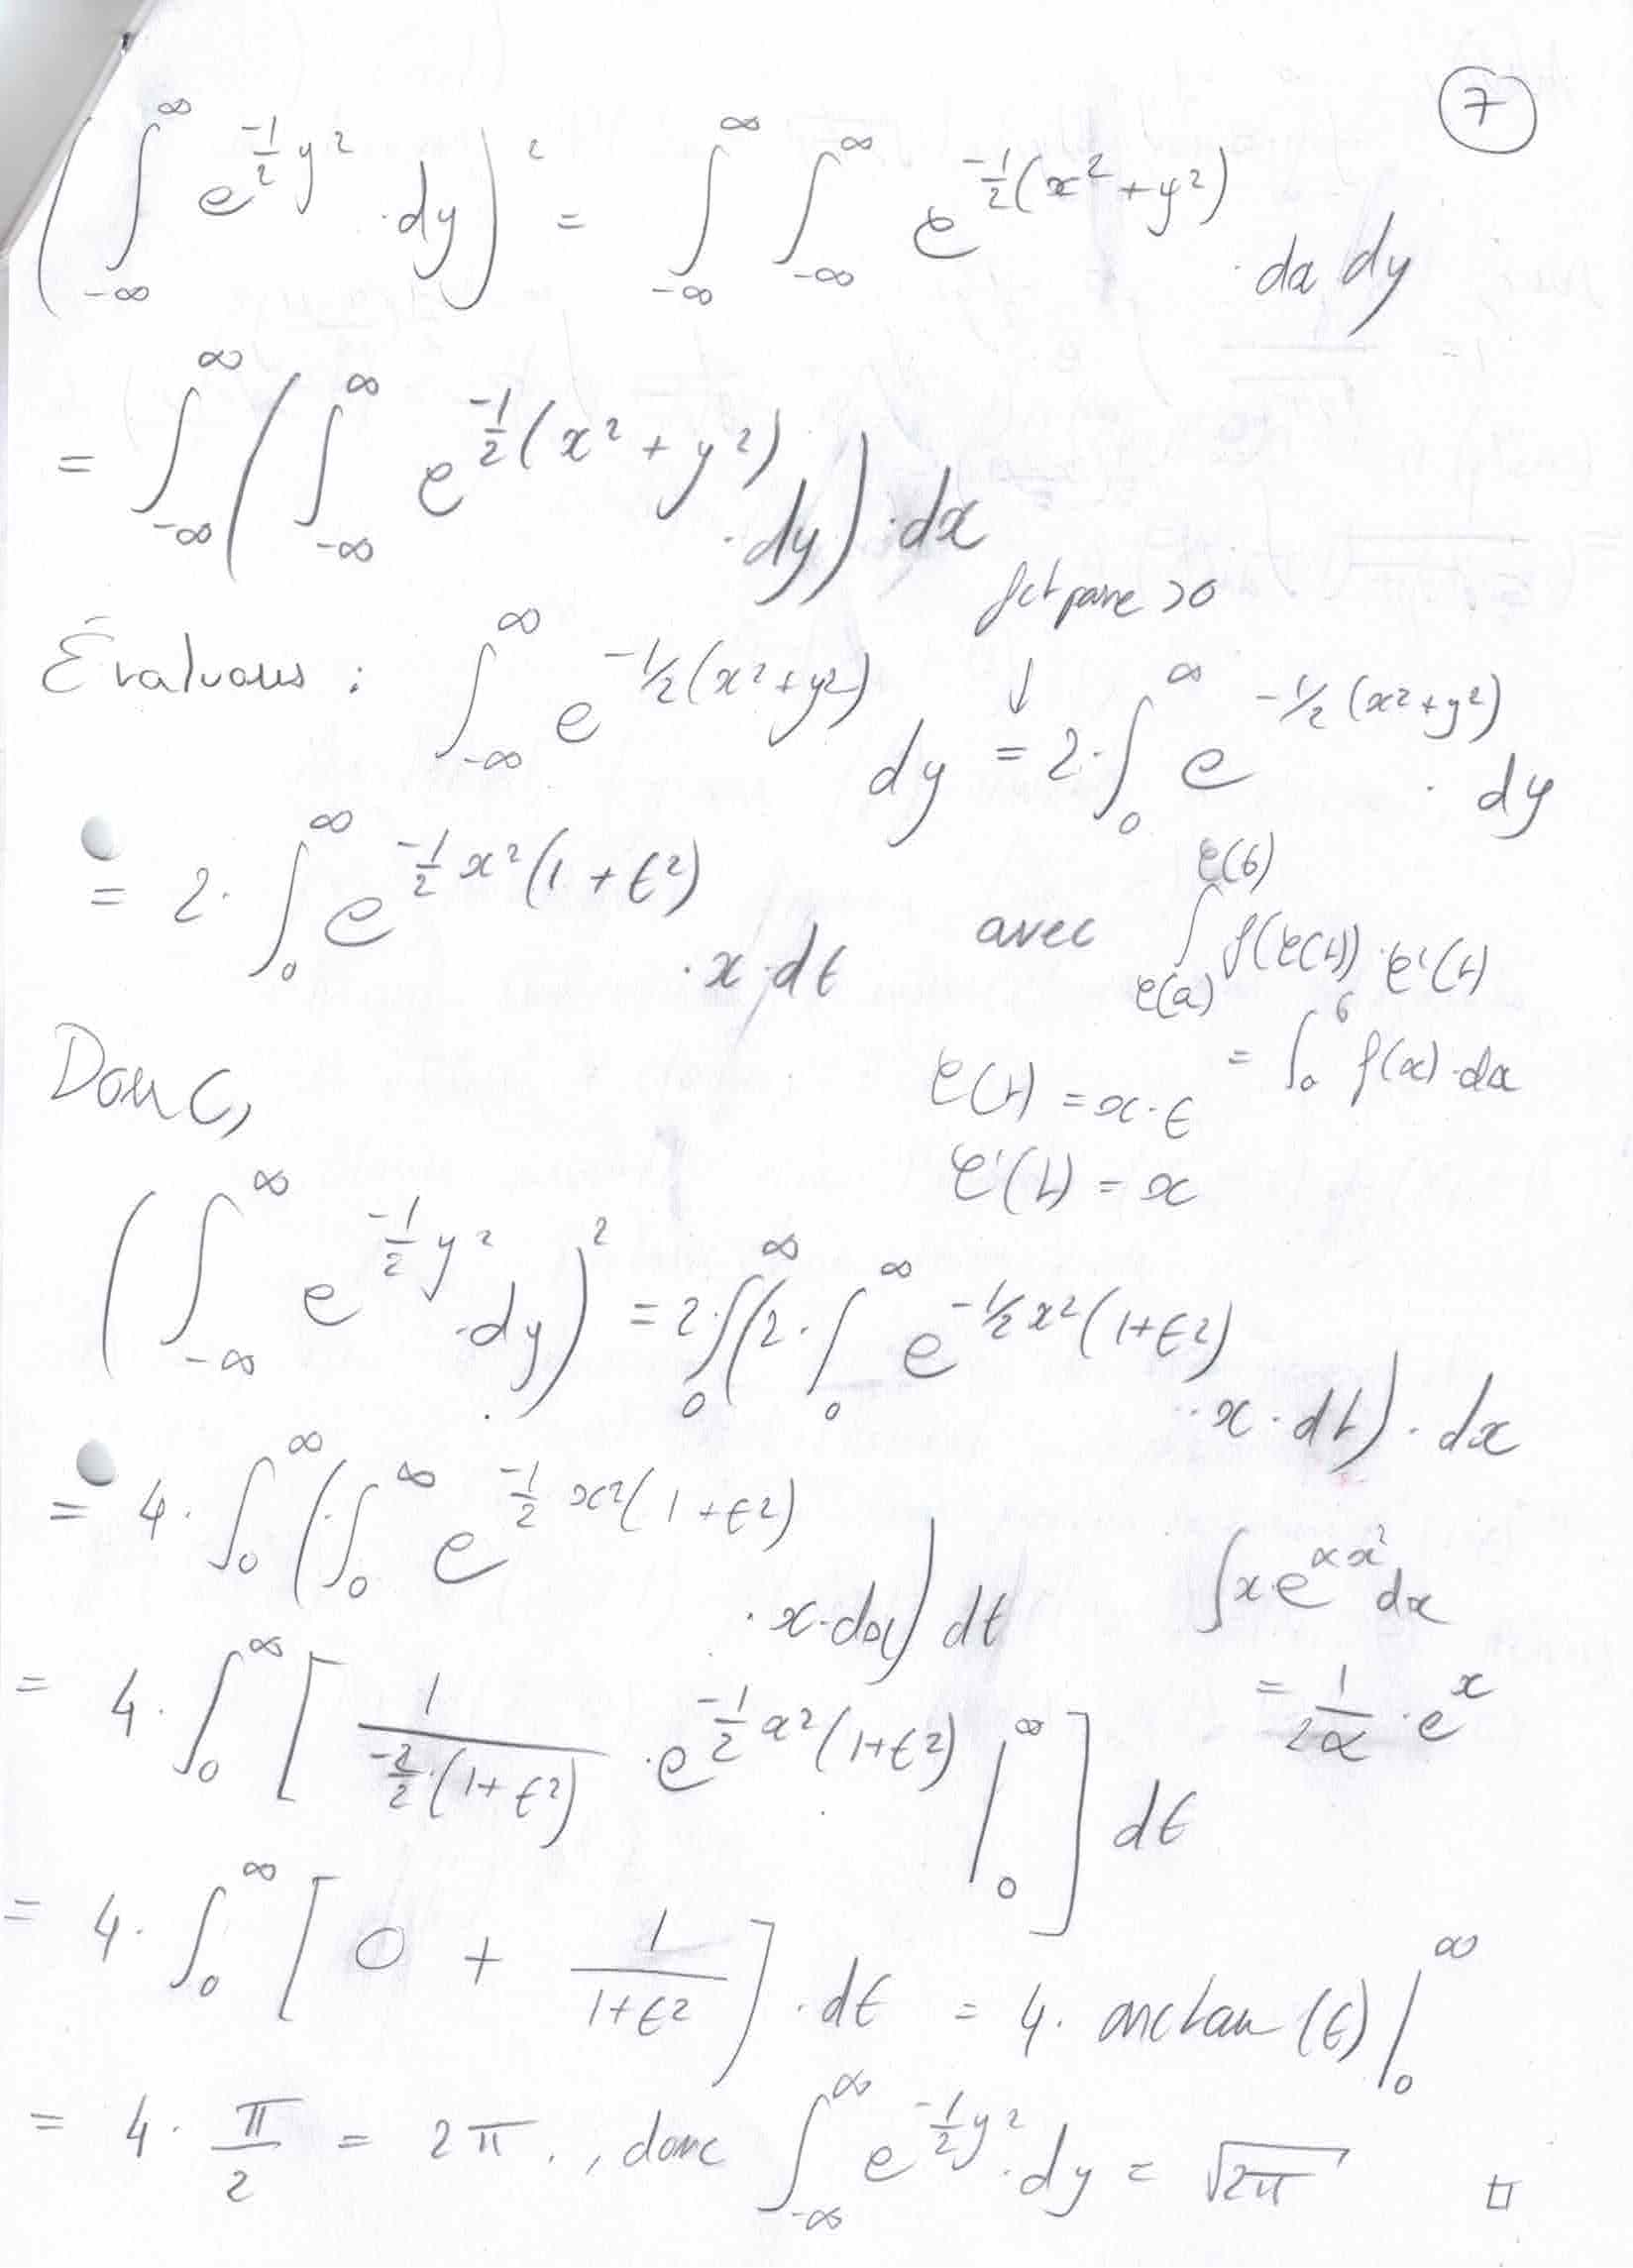 7
(∫_{-∞}^{∞} e^{-1/2 y²} · dy)² = ∫_{-∞}^{∞} ∫_{-∞}^{∞} e^{-1/2(x²+y²)} · dx dy
= ∫_{-∞}^{∞} (∫_{-∞}^{∞} e^{-1/2(x²+y²)} · dy) · dx
fct paire >0
↓
Évaluons : ∫_{-∞}^{∞} e^{-1/2(x²+y²)} dy = 2 · ∫_0^∞ e^{-1/2(x²+y²)} · dy
= 2 · ∫_0^∞ e^{-1/2 x²(1+t²)} · x · dt avec ∫_{φ(a)}^{φ(b)} f(φ(t)) · φ'(t)
= ∫_0^b f(x) · dx
Donc,
φ(t) = x · t
φ'(t) = x
(∫_{-∞}^{∞} e^{-1/2 y²} · dy)² = 2 · ∫_0^∞ (2 · ∫_0^∞ e^{-1/2 x²(1+t²)} · x · dt) · dx
= 4 · ∫_0^∞ (∫_0^∞ e^{-1/2 x²(1+t²)} · x · dx) dt
∫ x · e^{αx²} dx
= 1/2α · e^x
= 4 · ∫_0^∞ [1/(-2/2 · (1+t²)) · e^{-1/2 x²(1+t²)} |_0^∞] dt
= 4 · ∫_0^∞ [0 + 1/(1+t²)] · dt = 4 · arctan(t) |_0^∞
= 4 · π/2 = 2π ., donc ∫_{-∞}^{∞} e^{-1/2 y²} · dy = √2π □